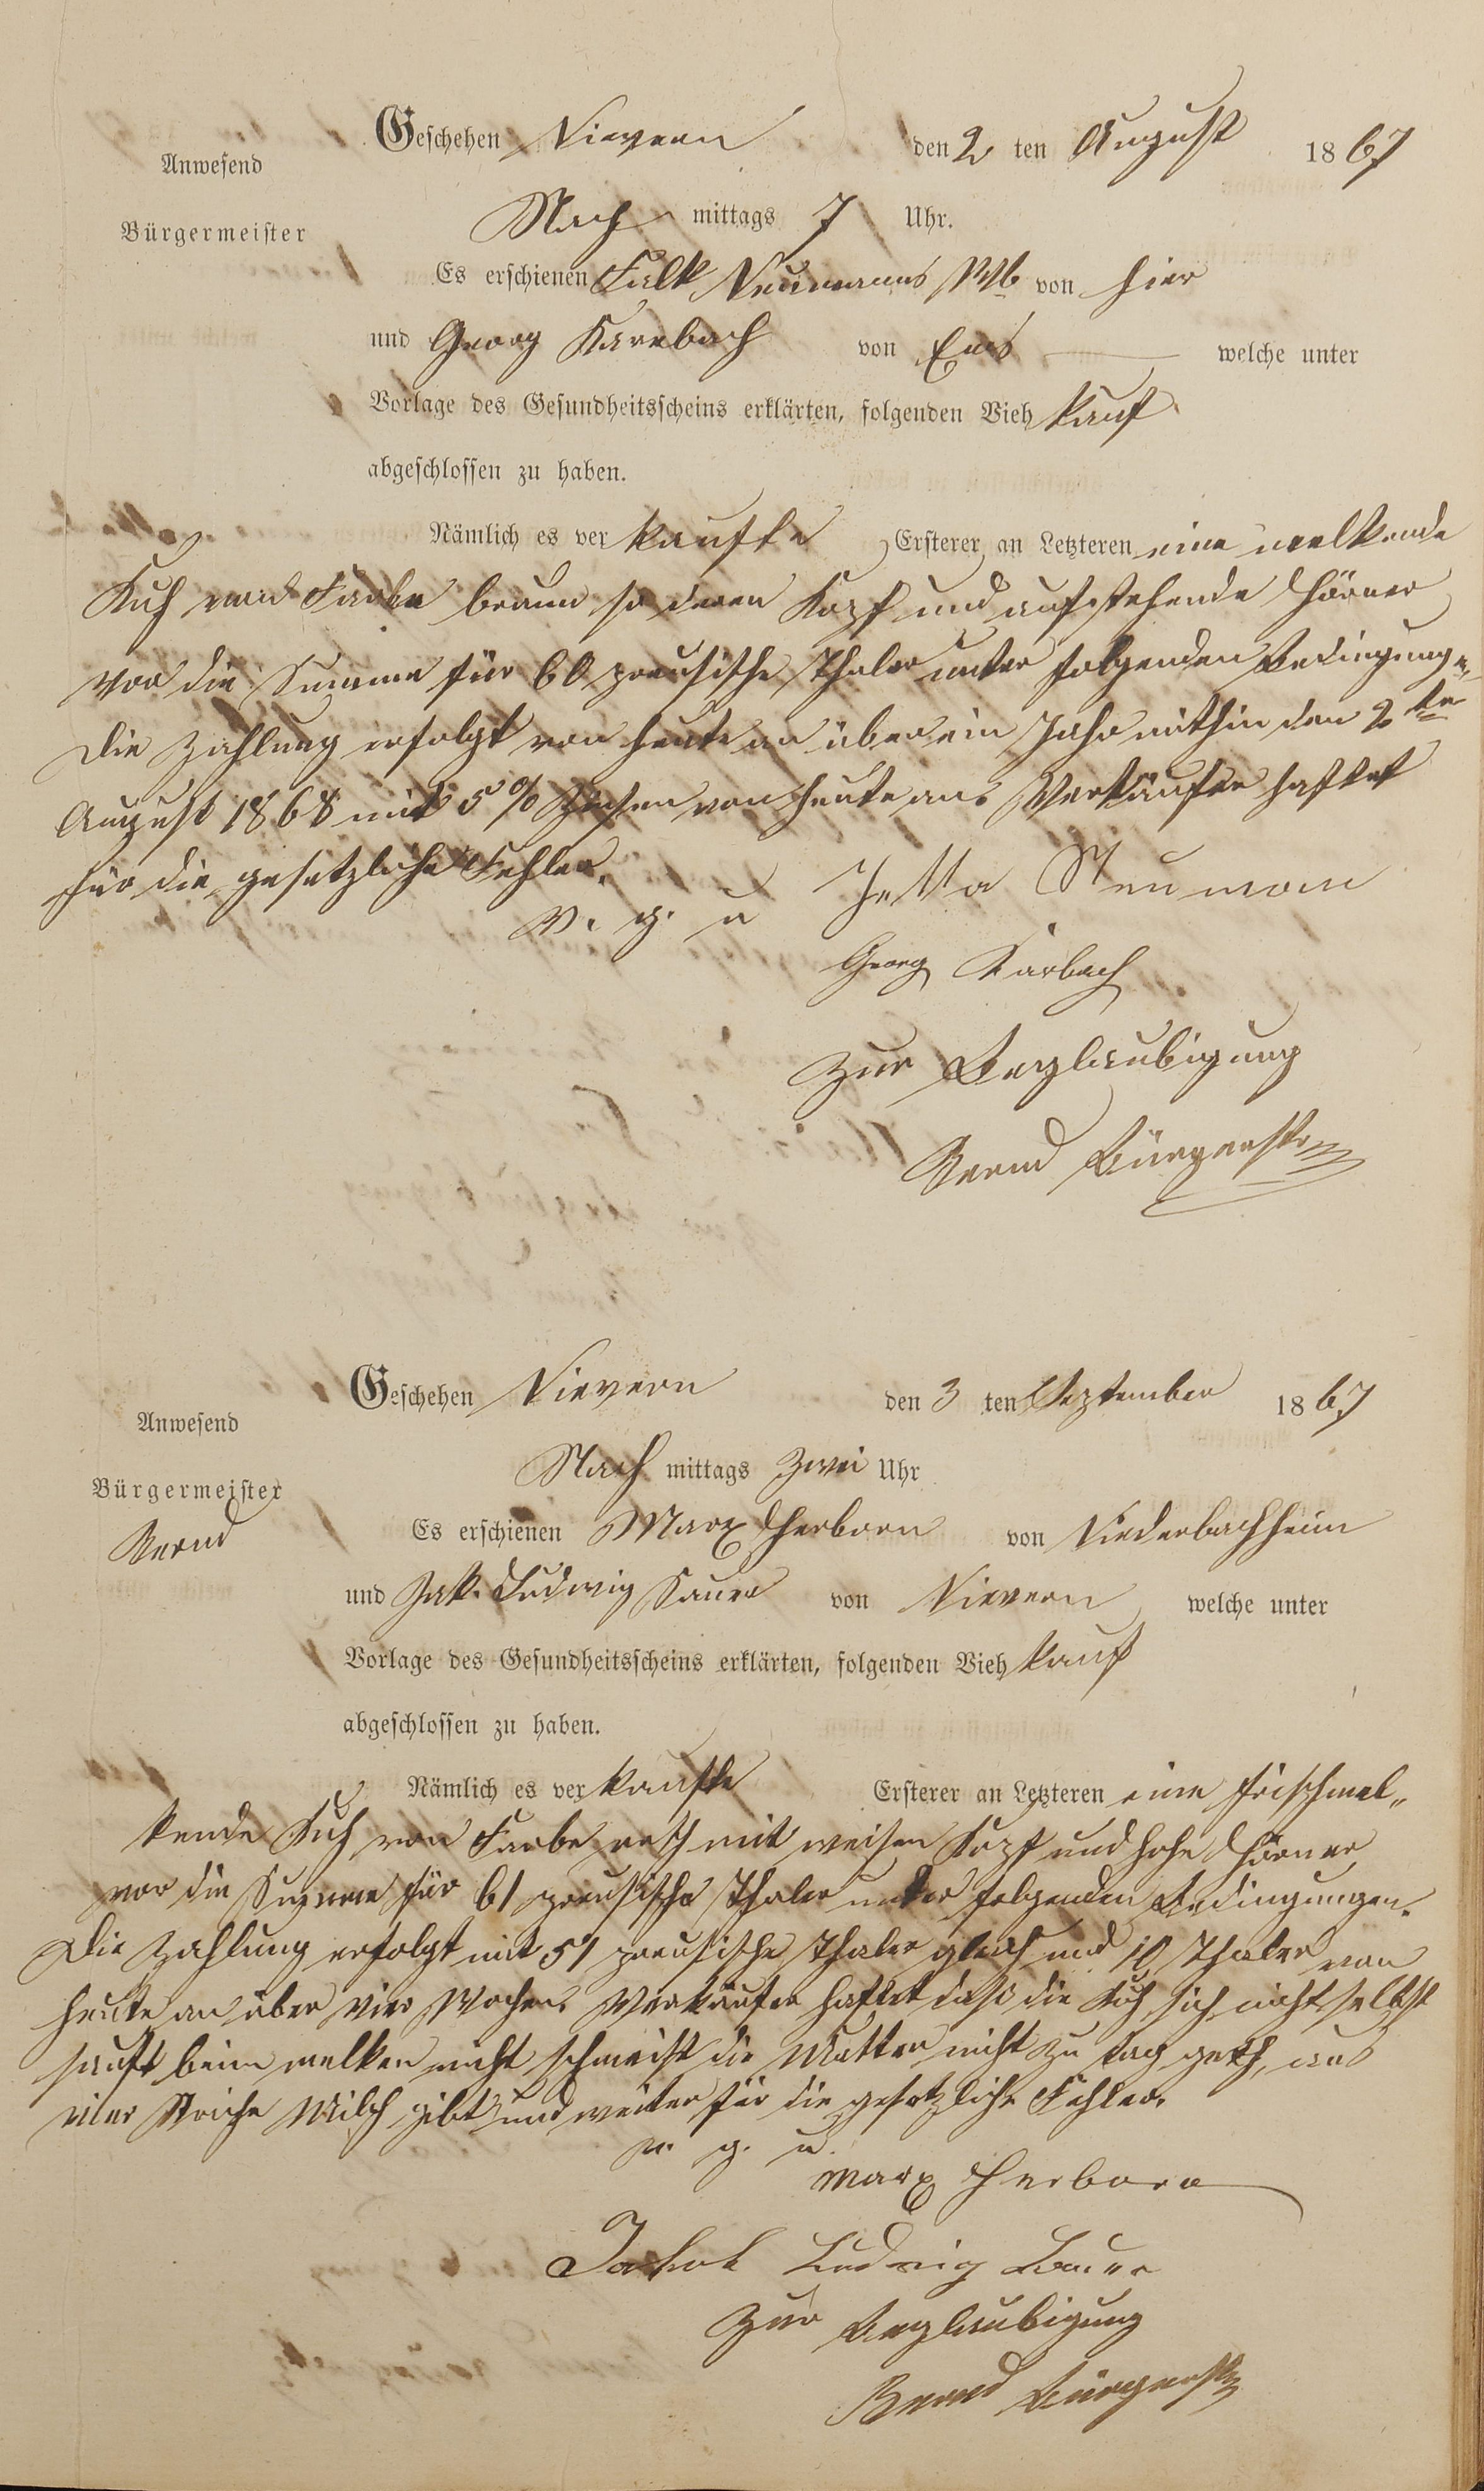 Geschehen Nievern den 2 ten August 1867
Anwesend
Nach mittags 7 Uhr.
Bürgermeister
Es erschienen Falk Neumanns Wb von hier
und Georg Karbach von Ems welche unter
Vorlage des Gesundheitsscheins erklärten, folgenden Vieh kauf
abgeschlossen zu haben.
Nämlich es ver kaufte Ersterer an Letzteren eine melkende
Kuh von Farbe braun so deren Kopf und aufstehende Hörner
vor die Summe für 60 preusische Thaler unter folgenden Bedingungen
Die Zahlung erfolgt von heute an über ein Jahr mithin den 2te
August 1868 mit 5% Zinsen von heute an. Verkäufer haftet
für die gesetzliche Fehler.
v. g. u Jetta Neuman
Georg Karbach
Zur Beglaubigung
Bernd Bürgermstr
Geschehen Nievern den 3 ten September 1867
Anwesend
Nach mittags Zwei Uhr
Bürgermeister
Bernd
Es erschienen Marx Herborn von Niederbachheim
und Jak. Ludwig Sauer von Nievern welche unter
Vorlage des Gesundheitsscheins erklärten, folgenden Vieh kauf
abgeschlossen zu haben.
Nämlich es ver kaufte Ersterer an Letzteren eine frischmel„
kende Kuh von Farbe roth mit weisen Kopf und hohe Hörner
vor die Summe für 61 preusische Thaler unter folgenden Bedingungen.
Die Zahlung erfolgt mit 51 preusische Thaler gleich und 10 Thaler von
heute an über vier Wochen. Verkäufer haftet daß die Kuh sich nicht selbst
sauft beim melken nicht schmeist die Mutter nicht zu tag geth, aus
vier Striche Milch gibt und weiter für die gesetzliche Fehler.
v. g. u.
Marx Herborn
Jakob Ludwig Sauer
Zur Beglaubigung
Bernd Bürgermstr